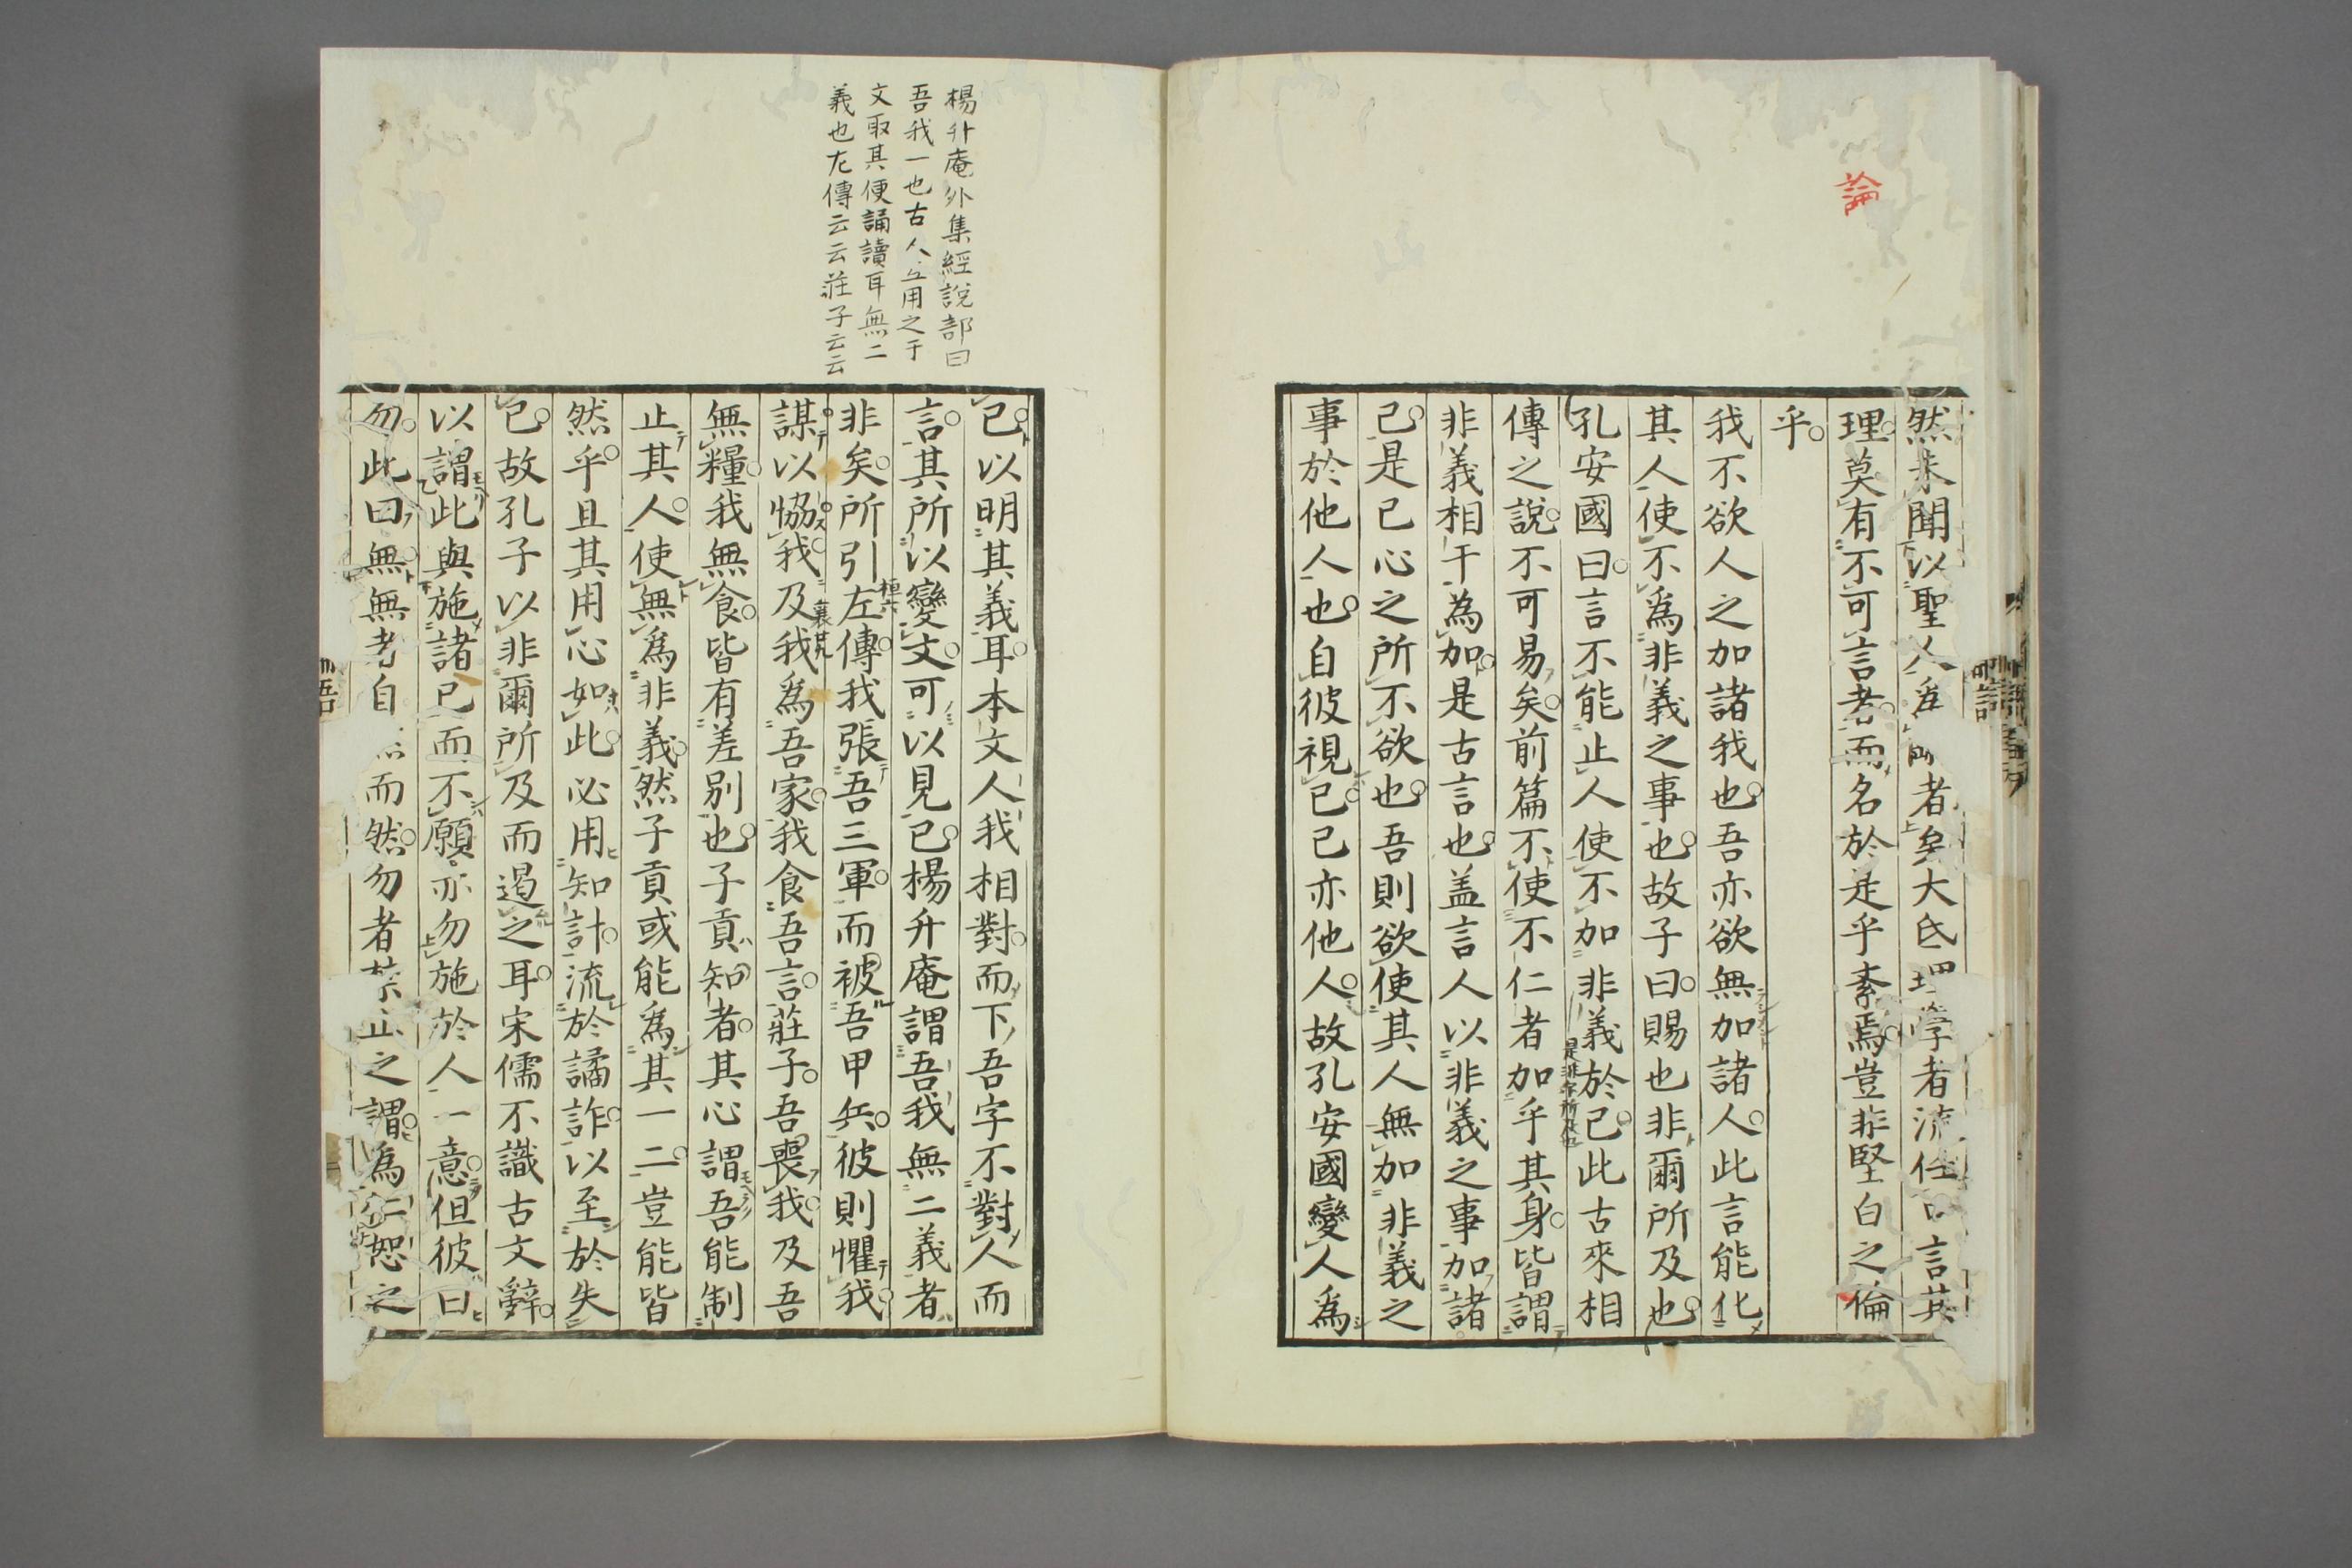 論
然未聞以聖人為者矣大氐理學者流任口言其
理莫有不可言者而名於是乎紊焉豈非堅白之倫
乎
我不欲人之加諸我也吾亦欲無加諸人此言能化
其人使不為非義之事也故子曰賜也非爾所及也
孔安國曰言不能止人使不加非義於己此古來相
是非字所及也
傳之說不可易矣前篇不使不仁者加乎其身皆謂
非義相干為加是古言也盖言人以非義之事加諸
己是己心之所不欲也吾則欲使其人無加非義之
事於他人也自彼視己己亦他人故孔安國變人為
楊升庵外集經說部曰
吾我一也古人互用之于
文取其便誦讀耳無二
義也左傳云云莊子云云
己以明其義耳本文人我相對而下吾字不對人而
言其所以變文可以見已楊升庵謂吾我無二義者
非矣所引左傳我張吾三軍而被吾甲兵彼則懼我
桓六
謀以恊我及我為吾家我食吾言莊子吾喪我及吾
襄廿九
無糧我無食皆有差別也子貢知者其心謂吾能制
止其人使無為非義然子貢或能為其一二豈能皆
然乎且其用心如此必用知計流於譎詐以至於失
己故孔子以非爾所及而遏之耳宋儒不識古文辭
以謂此與施諸己而不願亦勿施於人一意但彼曰
勿此曰無無者自然而然勿者禁止之謂為仁恕之